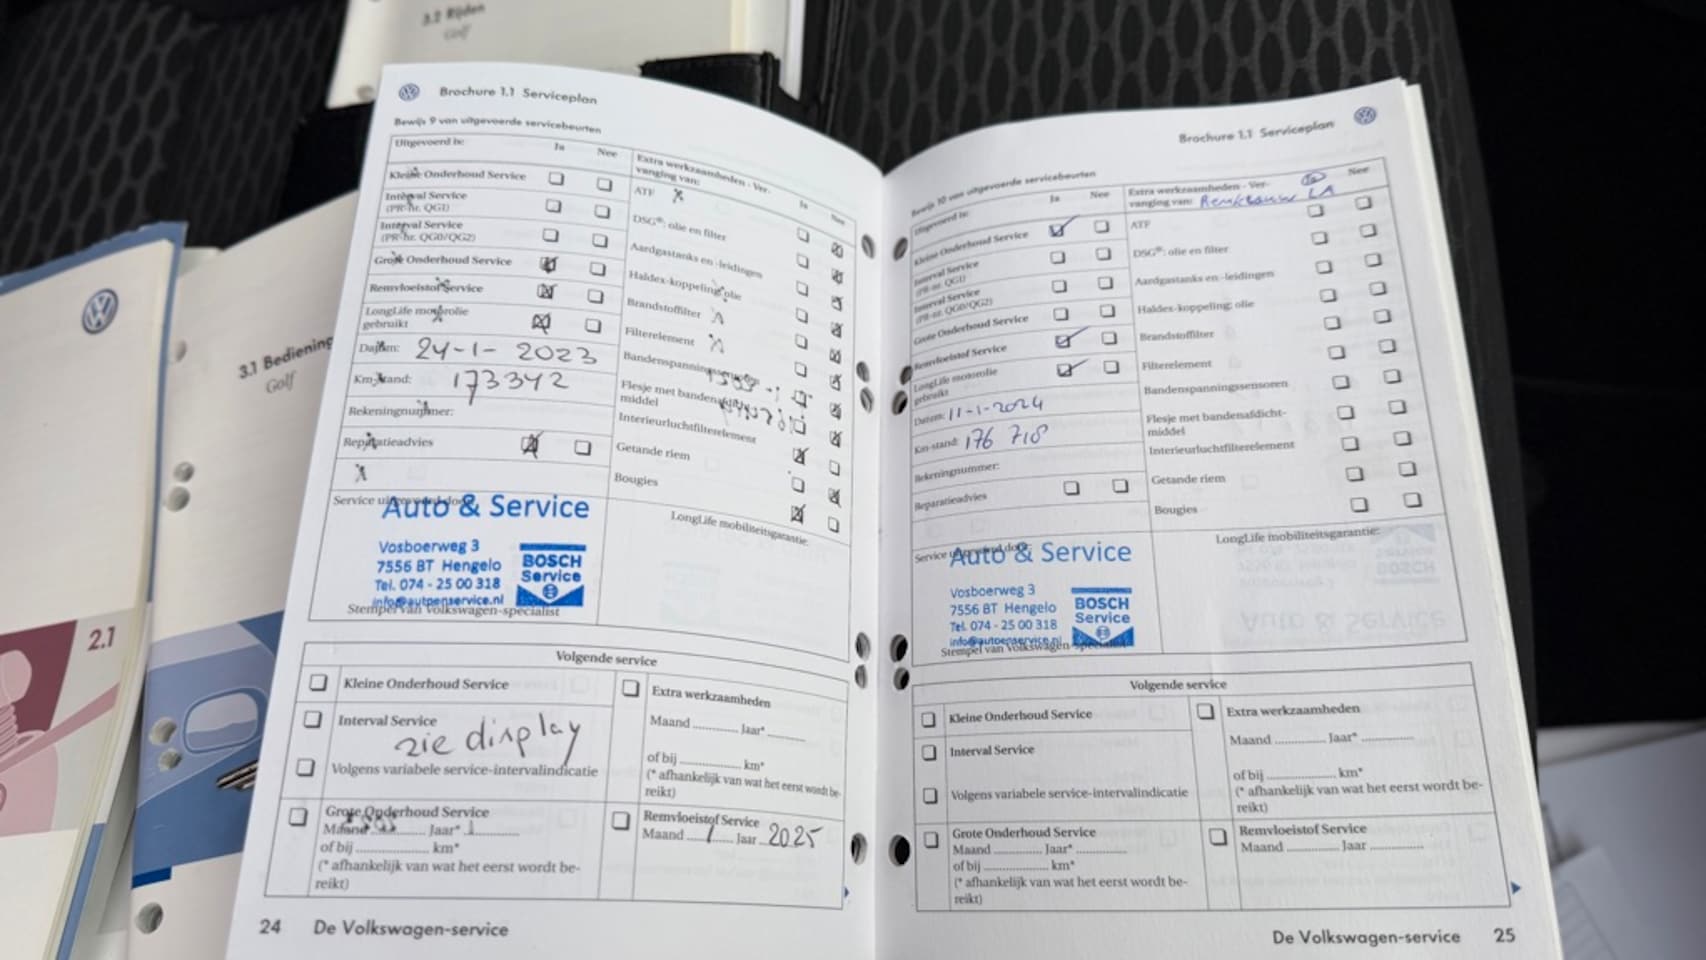 3.2 Rijden
Golf
3.1 Bediening
Golf
2.1
Brochure 1.1 Serviceplan
Bewijs 9 van uitgevoerde servicebeurten
Uitgevoerd is:
Ja
Nee
Kleine Onderhoud Service
Interval Service
(PR-nr. QG1)
Interval Service
(PR-nr. QG0/QG2)
Grote Onderhoud Service
Remvloeistof Service
LongLife motorolie
gebruikt
Datum: 24-1-2023
Km-stand: 173342
Rekeningnummer:
Reparatieadvies
Extra werkzaamheden - Ver-
vanging van:
Ja
Nee
ATF
DSG®: olie en filter
Aardgastanks en -leidingen
Haldex-koppeling: olie
Brandstoffilter
Filterelement
Bandenspanningssensoren
Flesje met bandenafdicht-
middel
Interieurluchtfilterelement
Getande riem
Bougies
Service uitgevoerd door:
Auto & Service
Vosboerweg 3
7556 BT Hengelo
Tel. 074 - 25 00 318
info@autoenservice.nl
BOSCH
Service
Stempel van Volkswagen-specialist
LongLife mobiliteitsgarantie:
Volgende service
Kleine Onderhoud Service
Interval Service
zie display
Volgens variabele service-intervalindicatie
Grote Onderhoud Service
Maand Jaar*
of bij km*
(* afhankelijk van wat het eerst wordt be-
reikt)
Extra werkzaamheden
Maand Jaar*
of bij km*
(* afhankelijk van wat het eerst wordt be-
reikt)
Remvloeistof Service
Maand 1 Jaar 2025
24 De Volkswagen-service
Brochure 1.1 Serviceplan
Bewijs 10 van uitgevoerde servicebeurten
Uitgevoerd is:
Ja
Nee
Kleine Onderhoud Service
Interval Service
(PR-nr. QG1)
Interval Service
(PR-nr. QG0/QG2)
Grote Onderhoud Service
Remvloeistof Service
LongLife motorolie
gebruikt
Datum: 11-1-2024
Km-stand: 176 718
Rekeningnummer:
Reparatieadvies
Extra werkzaamheden - Ver-
vanging van:
Ja
Nee
ATF
DSG®: olie en filter
Aardgastanks en -leidingen
Haldex-koppeling: olie
Brandstoffilter
Filterelement
Bandenspanningssensoren
Flesje met bandenafdicht-
middel
Interieurluchtfilterelement
Getande riem
Bougies
Service uitgevoerd door:
Auto & Service
Vosboerweg 3
7556 BT Hengelo
Tel. 074 - 25 00 318
info@autoenservice.nl
BOSCH
Service
Stempel van Volkswagen-specialist
LongLife mobiliteitsgarantie:
Volgende service
Kleine Onderhoud Service
Interval Service
Volgens variabele service-intervalindicatie
Grote Onderhoud Service
Maand Jaar*
of bij km*
(* afhankelijk van wat het eerst wordt be-
reikt)
Extra werkzaamheden
Maand Jaar*
of bij km*
(* afhankelijk van wat het eerst wordt be-
reikt)
Remvloeistof Service
Maand Jaar
De Volkswagen-service 25